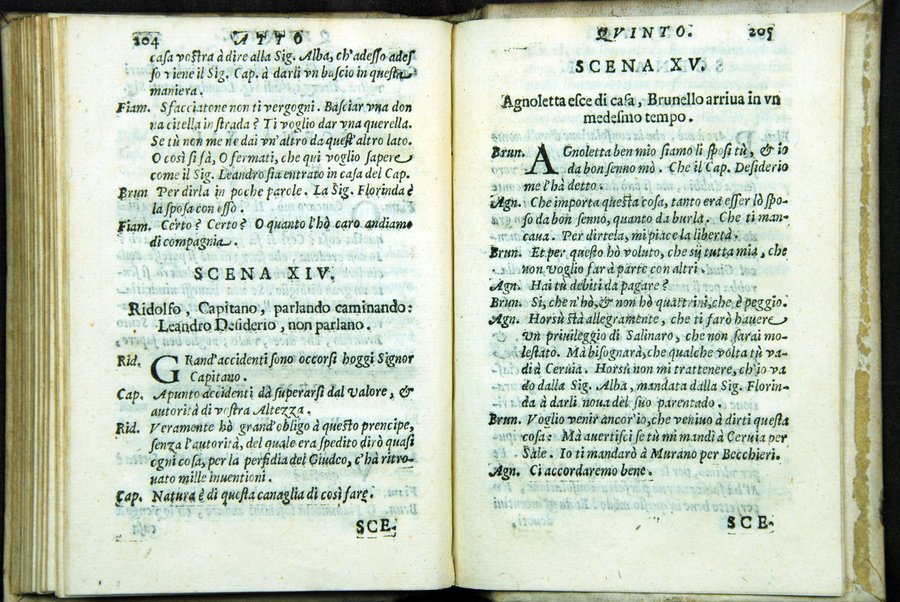 204 ATTO
casa vostra à dire alla Sig. Alba, ch'adesso ades
so viene il Sig. Cap. à darli vn bascio in questa
maniera.
Fiam. Sfacciatone non ti vergogni. Basciar vna don
na citella in strada? Ti voglio dar vna querella.
Se tù non me ne dai vn'altro da quest'altro lato.
O così si fà, O fermati, che qui voglio sapere
come il Sig. Leandro sia entrato in casa del Cap.
Brun Per dirla in poche parole. La Sig. Florinda è
la sposa con esso.
Fiam. Certo? Certo? O quanto l'hò caro andiamo
di compagnia.
SCENA XIV.
Ridolfo, Capitano, parlando caminando:
Leandro Desiderio, non parlano.
Rid. GRand'accidenti sono occorsi hoggi Signor
Capitano.
Cap. Apunto accidenti dà superarsi dal valore, &
autorità di vostra Altezza.
Rid. Veramente hò grand'obligo à questo prencipe,
senza l'autorità, del quale era spedito dirò quasi
ogni cosa, per la perfidia del Giudeo, c'hà ritro-
uato mille inuentioni.
Cap. Natura è di questa canaglia di così fare.
SCE-
QVINTO. 205
SCENA XV.
Agnoletta esce di casa, Brunello arriua in vn
medesmo tempo.
Brun. AGnoletta ben mio siamo li sposi tù, & io
da bon senno mò. Che il Cap. Desiderio
me l'hà detto.
Agn. Che importa questa cosa, tanto era esser lò spo-
so da bon senno, quanto da burla. Che ti man-
caua. Per dirtela, mi piace la libertà.
Brun. Et per questo hò voluto, che sij tutta mia, che
non voglio far à parte con altri.
Agn. Hai tù debiti da pagare?
Brun. Si, che n'hò, & non hò quattrini, che è peggio.
Agn. Horsù stà allegramente, che ti farò hauere
vn priuileggio di Salinaro, che non sarai mo-
lestato. Mà bisognarà, che qualche volta tù va-
di à Ceruia. Horsù non mi trattenere, ch'io va
do dalla Sig. Alba, mandata dalla Sig. Florin-
da à darli noua del suo parentado.
Brun. Voglio venir ancor'io, che veniuo à dirti questa
cosa: Mà auertisci se tù mi mandi à Ceruia per
Sale. Io ti mandarò à Murano per Becchieri.
Agn. Ci accordaremo bene.
SCE-